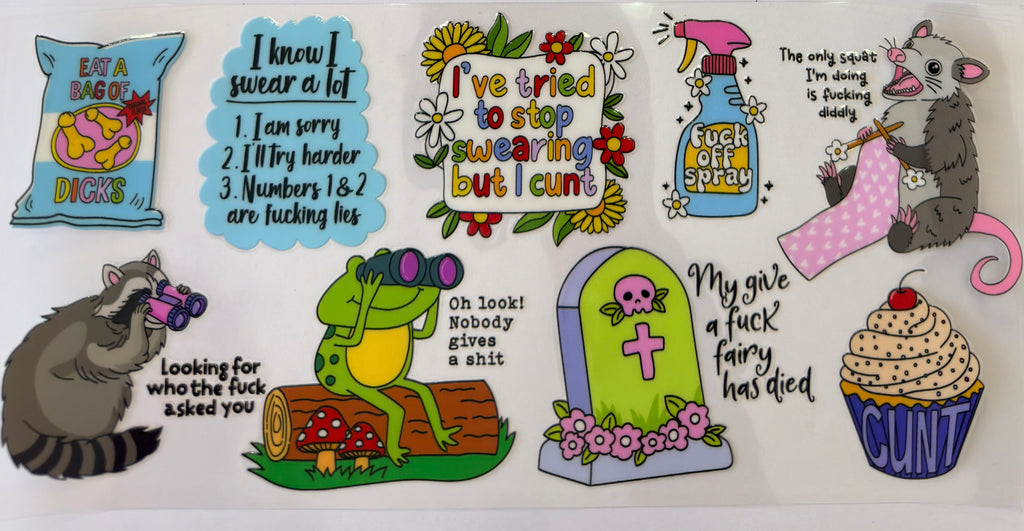 EAT A
BAG OF
DICKS
I know I
swear a lot
1. I am sorry
2. I'll try harder
3. Numbers 1 & 2
are fucking lies
I've tried
to stop
swearing
but I cunt
fuck
off
spray
The only squat
I'm doing
is fucking
diddly
Looking for
who the fuck
asked you
Oh look!
Nobody
gives
a shit
My give
a fuck
fairy
has died
CUNT